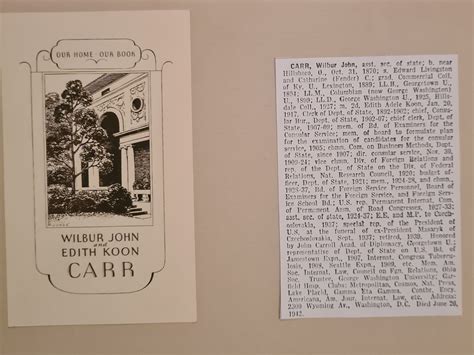 OUR HOME · OUR BOOK
WILBUR JOHN
and
EDITH KOON
CARR
CARR, Wilbur John, asst. sec. of state; b. near
Hillsboro, O., Oct. 31, 1870; s. Edward Livingston
and Catharine (Fender) C.; grad. Commercial Coll.
of Ky. U., Lexington, 1889; LL.B., Georgetown U.,
1894; LL.M., Columbian (now George Washington)
1925; Hills-
dale Coll., 1937; m. 2d, Edith Adele Koon, Jan. 20,
1917. Clerk of Dept. of State, 1892-1902; chief, Consu-
lar Bur., Dept. of State, 1902-07; chief clerk, Dept. of
State, 1907-09; mem. of Bd. of Examiners for the
Consular Service; mem. of board to formulate plan
for the examination of candidates for the consular
service, 1905; chmn. Com. on Business Methods, Dept.
of State, since 1907; dir. consular service, Nov. 30,
1909-24; vice chmn. Div. of Foreign Relations and
rep. of the Dept. of State on the Div. of Federal
Relations, Nat. Research Council, 1920; budget
officer, Dept. of State, 1921; mem. 1924-28, and chmn.,
1928-37, Bd. of Foreign Service Personnel, Board of
Examiners for the Foreign Service, and Foreign Serv-
ice School Bd.; U.S. rep. Permanent Internat. Com.
of Permanent Assn. of Road Congresses, 1927-33;
asst. sec. of state, 1924-37; E.E. and M.P. to Czech-
oslovakia, 1937; special rep. of the President of
U.S. at the funeral of ex-President Masaryk of
Czechoslovakia, Sept. 1937; retired, 1939. Honored
by John Carroll Acad. of Diplomacy, Georgetown U.;
representative of Dept. of State on U.S. Bd. of
Jamestown Expn., 1907, Internat. Congress Tubercu-
losis, 1908, Seattle Expn., 1909, etc. Mem. Am.
Soc. Internat. Law, Council on Fgn. Relations, Ohio
Soc. Trustee, George Washington University; Gar-
field Hosp. Clubs: Metropolitan, Cosmos, Nat. Press,
Lake Placid, Gamma Eta Gamma. Contbr. Ency.
Americana, Am. Jour. Internat. Law, etc. Address:
2300 Wyoming Av., Washington, D.C. Died June 26,
1942.